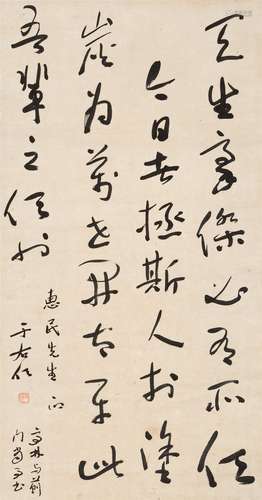 天生豪傑必有所任
今日者拯斯人於塗
炭為萬世開太平此
吾輩之任也
惠民先生正
于右任